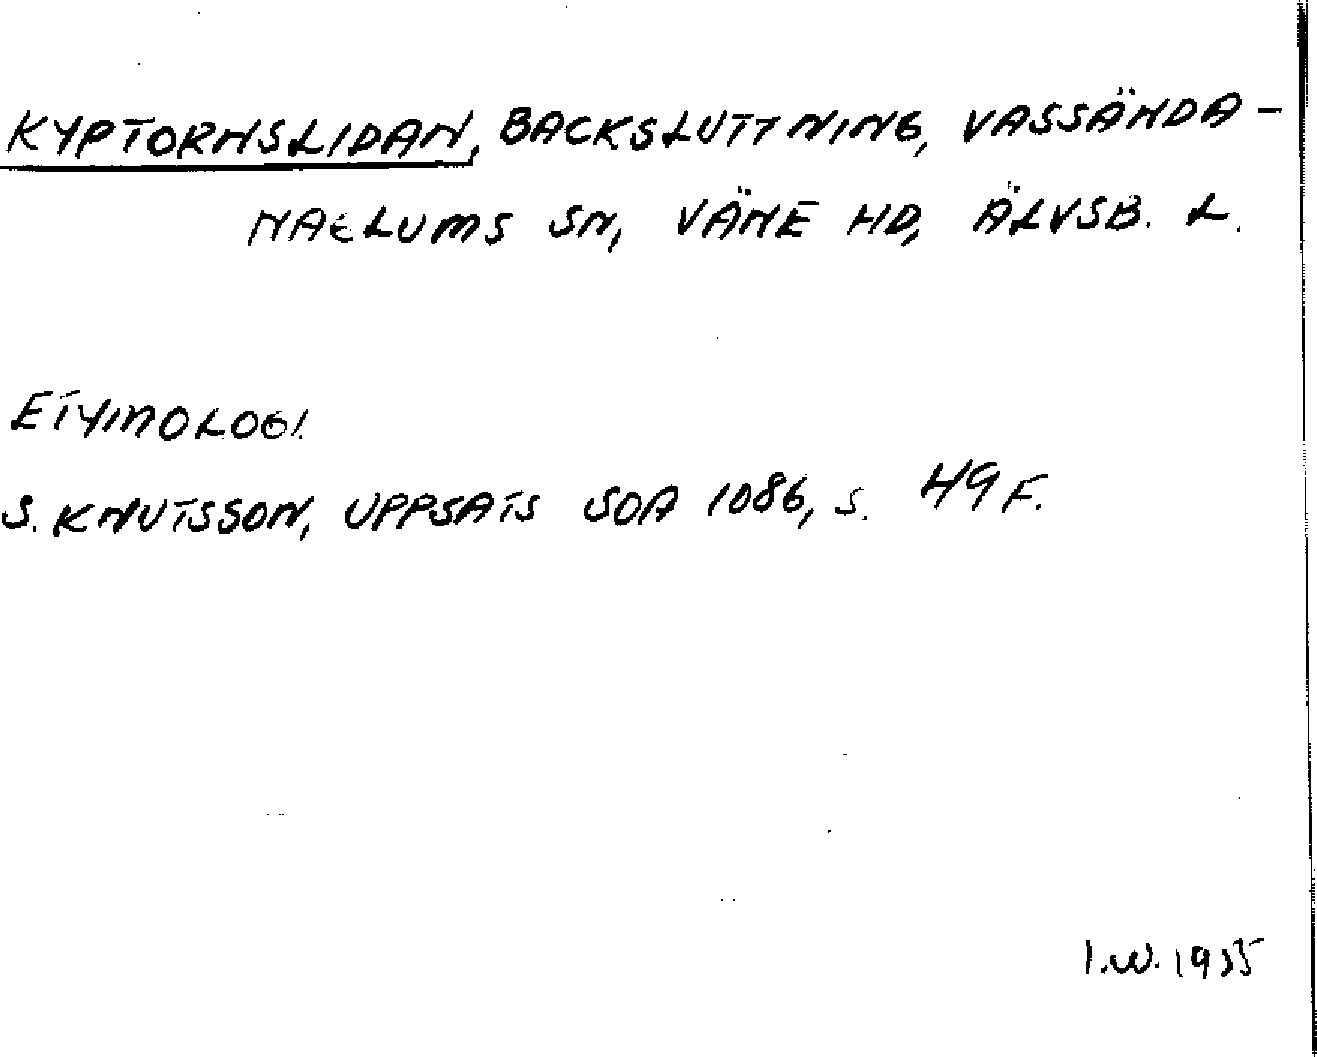 KYPTORNSLIDAN, BACKSLUTTNING, VASSÄNDA-
NAELUMS SN, VÄNE HD, ÄLVSB. L.
ETYMOLOGI.
S. KNUTSSON, UPPSATS SOA 1086, S. 49 F.
I.W. 1955